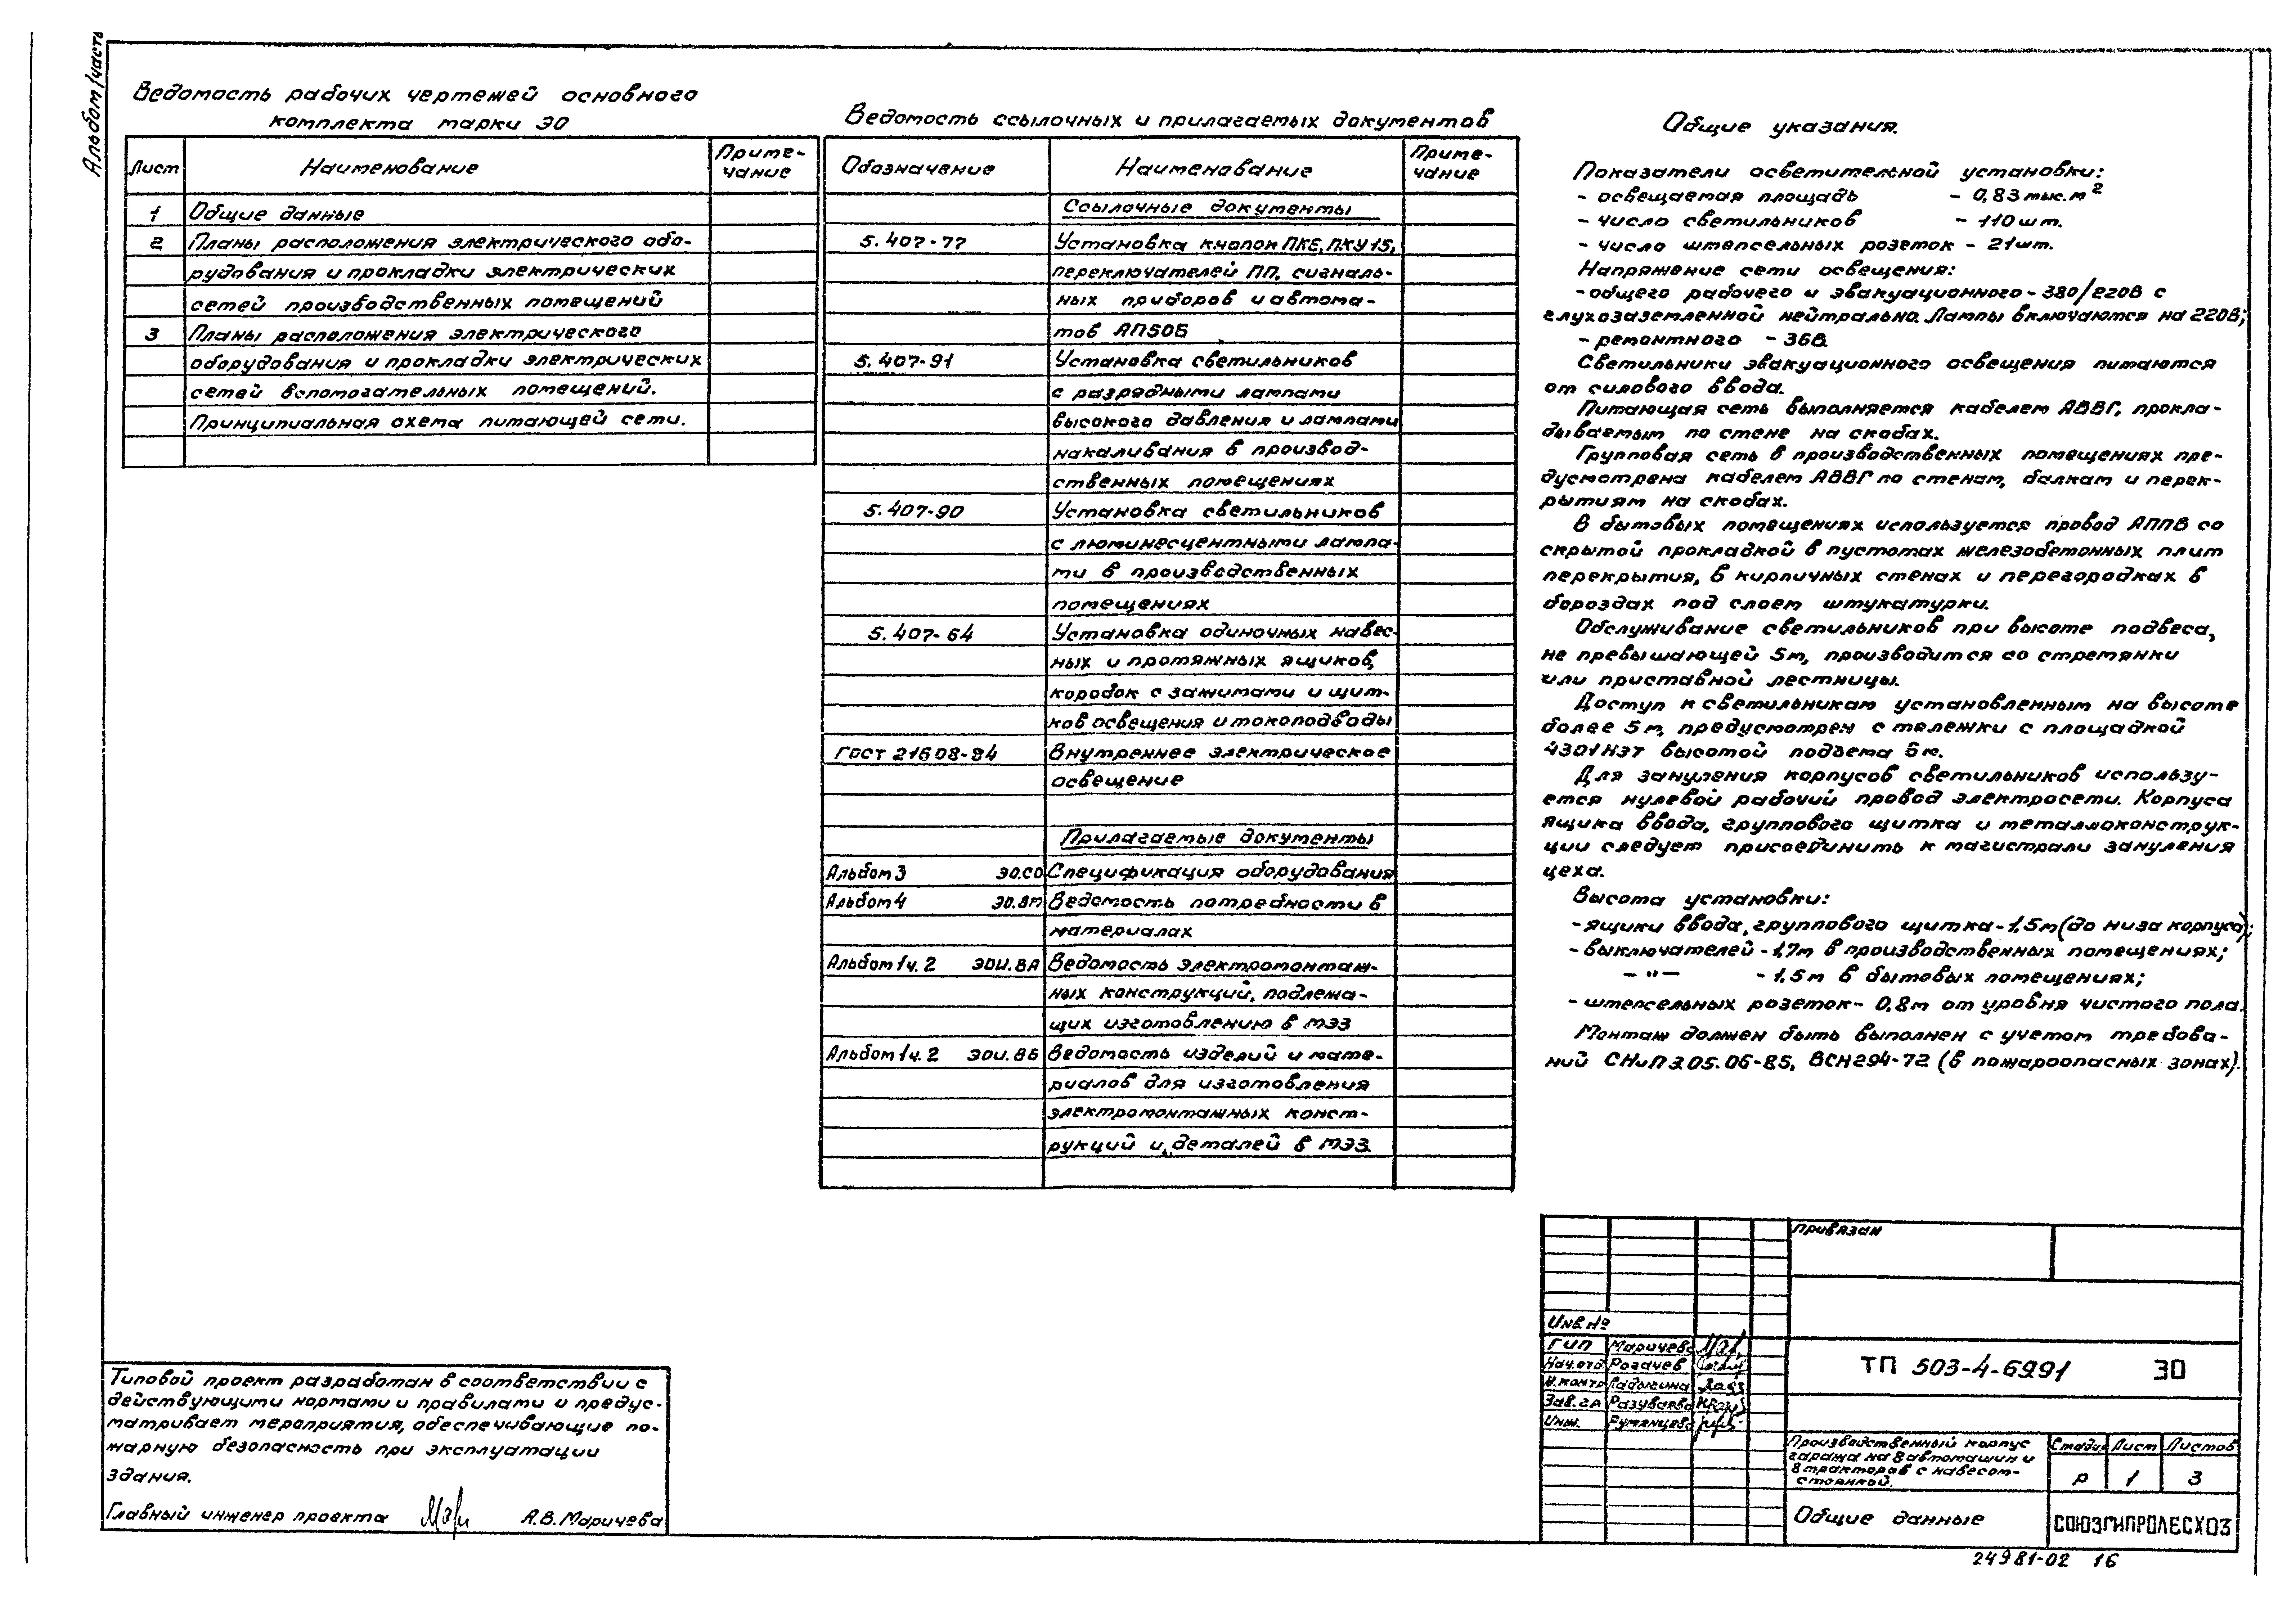 Альбом 1 часть
Ведомость рабочих чертежей основного
комплекта марки ЭО
Лист Наименование Приме-
чание
1 Общие данные
2 Планы расположения электрического обо-
рудования и прокладки электрических
сетей производственных помещений
3 Планы расположения электрического
оборудования и прокладки электрических
сетей вспомогательных помещений.
Принципиальная схема питающей сети.
Ведомость ссылочных и прилагаемых документов
Обозначение Наименование Приме-
чание
Ссылочные документы
5.407-77 Установка кнопок ПКЕ, ПКУ15,
переключателей ПП, сигналь-
ных приборов и автома-
тов АП50Б
5.407-91 Установка светильников
с разрядными лампами
высокого давления и лампами
накаливания в производ-
ственных помещениях
5.407-90 Установка светильников
с люминесцентными лампа-
ми в производственных
помещениях
5.407-64 Установка одиночных навес-
ных и протяжных ящиков,
коробок с зажимами и щит-
ков освещения и токоподводы
ГОСТ 21608-84 Внутреннее электрическое
освещение
Прилагаемые документы
Альбом 3 ЭО.СО Спецификация оборудования
Альбом 4 ЭО.ВМ Ведомость потребности в
материалах
Альбом 1 ч.2 ЭОИ.ВА Ведомость электромонтаж-
ных конструкций, подлежа-
щих изготовлению в МЭЗ
Альбом 1 ч.2 ЭОИ.ВБ Ведомость изделий и мате-
риалов для изготовления
электромонтажных конст-
рукций и деталей в МЭЗ.
Общие указания.
Показатели осветительной установки:
- освещаемая площадь - 0,83 тыс.м²
- число светильников - 110 шт.
- число штепсельных розеток - 21 шт.
Напряжение сети освещения:
- общего рабочего и эвакуационного - 380/220В с
глухозаземленной нейтралью. Лампы включаются на 220В;
- ремонтного - 36В.
Светильники эвакуационного освещения питаются
от силового ввода.
Питающая сеть выполняется кабелем АВВГ, прокла-
дываемым по стене на скобах.
Групповая сеть в производственных помещениях пре-
дусмотрена кабелем АВВГ по стенам, балкам и перек-
рытиям на скобах.
В бытовых помещениях используется провод АППВ со
скрытой прокладкой в пустотах железобетонных плит
перекрытия, в кирпичных стенах и перегородках в
бороздах под слоем штукатурки.
Обслуживание светильников при высоте подвеса,
не превышающей 5м, производится со стремянки
или приставной лестницы.
Доступ к светильникам установленным на высоте
более 5м, предусмотрен с тележки с площадкой
4301НЭТ высотой подъема 6м.
Для зануления корпусов светильников использу-
ется нулевой рабочий провод электросети. Корпуса
ящика ввода, группового щитка и металлоконструк-
ции следует присоединить к магистрали зануления
цеха.
Высота установки:
- ящики ввода, группового щитка - 1,5м (до низа корпуса);
- выключателей - 1,7м в производственных помещениях;
- "- - 1,5м в бытовых помещениях;
- штепсельных розеток - 0,8м от уровня чистого пола.
Монтаж должен быть выполнен с учетом требова-
ний СНиП 3.05.06-85, ВСН 294-72 (в пожароопасных зонах).
Типовой проект разработан в соответствии с
действующими нормами и правилами и предус-
матривает мероприятия, обеспечивающие по-
жарную безопасность при эксплуатации
здания.
Главный инженер проекта А.В. Маричева
Привязан
Инв.№
ГИП Маричева
Нач.отд Рогачев
Н.контр Ладыгина
Зав.гр Разуваева
Инж. Румянцева
ТП 503-4-69.91 ЭО
Производственный корпус
гаража на 8 автомашин и
8 тракторов с навесом-
стоянкой.
Стадия Лист Листов
Р 1 3
Общие данные
СОЮЗГИПРОЛЕСХОЗ
24981-02 16